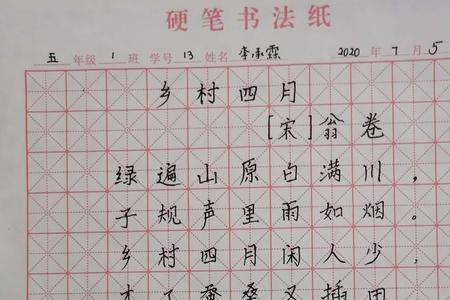 硬笔书法纸
五 年级 1 班 学号 13 姓名 李承霖 2020 年 7 月 5
乡村四月
[宋]翁卷
绿遍山原白满川，
子规声里雨如烟。
乡村四月闲人少，
才了蚕桑又插田